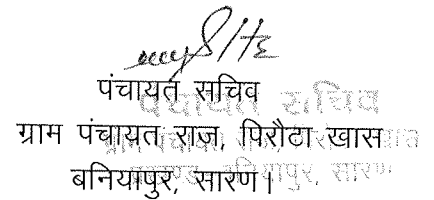 पंचायत सचिव
ग्राम पंचायत राज, पिरौटा खास
बनियापुर, सारण।
पंचायत सचिव